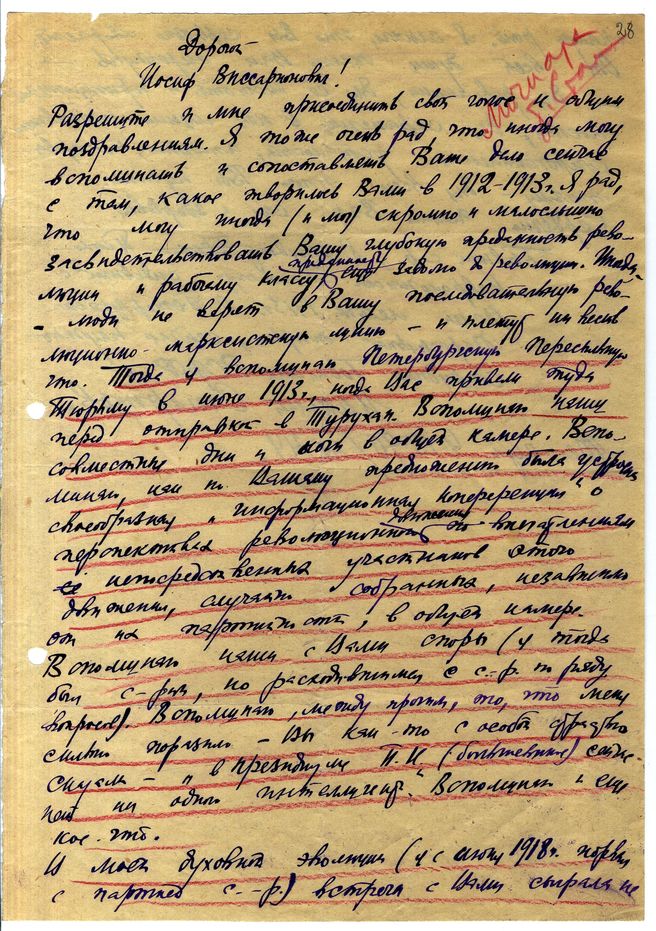 28
Дорогой
Иосиф Виссарионович!
Разрешите и мне присоединить свой голос к общим
поздравлениям. Я тоже очень рад, что иногда могу
вспоминать и сопоставлять Ваше дело сейчас
с тем, какое творилось Вами в 1912-1913 г. Я рад,
что могу иногда (и могу) скромно и малослышно
засвидетельствовать Вашу глубокую преданность рево-
люции и рабочему классу еще задолго до революции. Иногда
- люди не верят в Вашу последовательную рево-
люционно-марксистскую линию - и плетут
что. Тогда я вспоминаю Петербургскую Пересыльную
Тюрьму в июне 1913 г., когда Вас привели туда
перед отправкой в Турухан. Вспоминаю наши
совместные дни и ночи в общей камере. Вспо-
минаю, как по Вашему предложению была устроена
своеобразная "информационная конференция" о
перспективах революционного движения по впечатлениям
непосредственных участников этого
движения, случайно собранных, независимо
от их партийности, в общей камере.
Вспоминаю наши с Вами споры (я тогда
был с-ром, но расходившимся с с.-р. по ряду
вопросов). Вспоминаю, между прочим, то, что меня
сильно поразило - Вы как-то с особой страстью
сказали - "а в президиуме Ц.К. (большевиков) сейчас
нет ни одного интеллигента." Вспоминаю и еще
кое-что.
В моей духовной эволюции (я с июля 1918 г. порвал
с партией с.-р.) встреча с Вами сыграла не